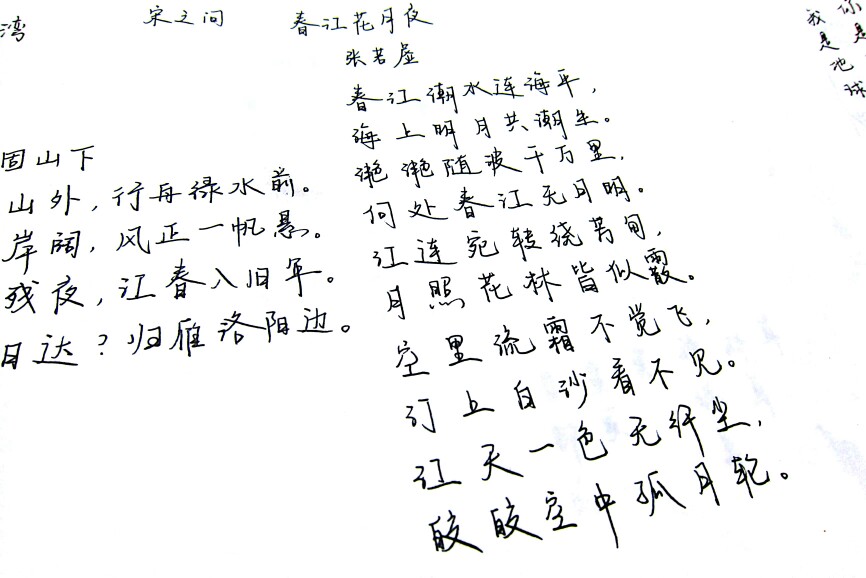 湾
宋之问
固山下
山外，行舟绿水前。
岸阔，风正一帆悬。
残夜，江春入旧年。
日达？归雁洛阳边。
春江花月夜
张若虚
春江潮水连海平，
海上明月共潮生。
滟滟随波千万里，
何处春江无月明。
江连宛转绕芳甸，
月照花林皆似霰。
空里流霜不觉飞，
汀上白沙看不见。
江天一色无纤尘，
皎皎空中孤月轮。
你是
我是地球